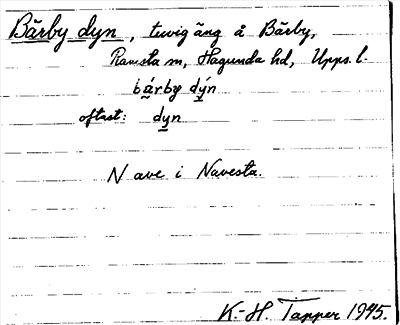 Bärby dyn, tuvig äng å Bärby,
Ramsta sn, Hagunda hd, Upps. l.
bárby dýn
oftast: dyn
N ave i Navesta.
K.-H. Tapper 1945.